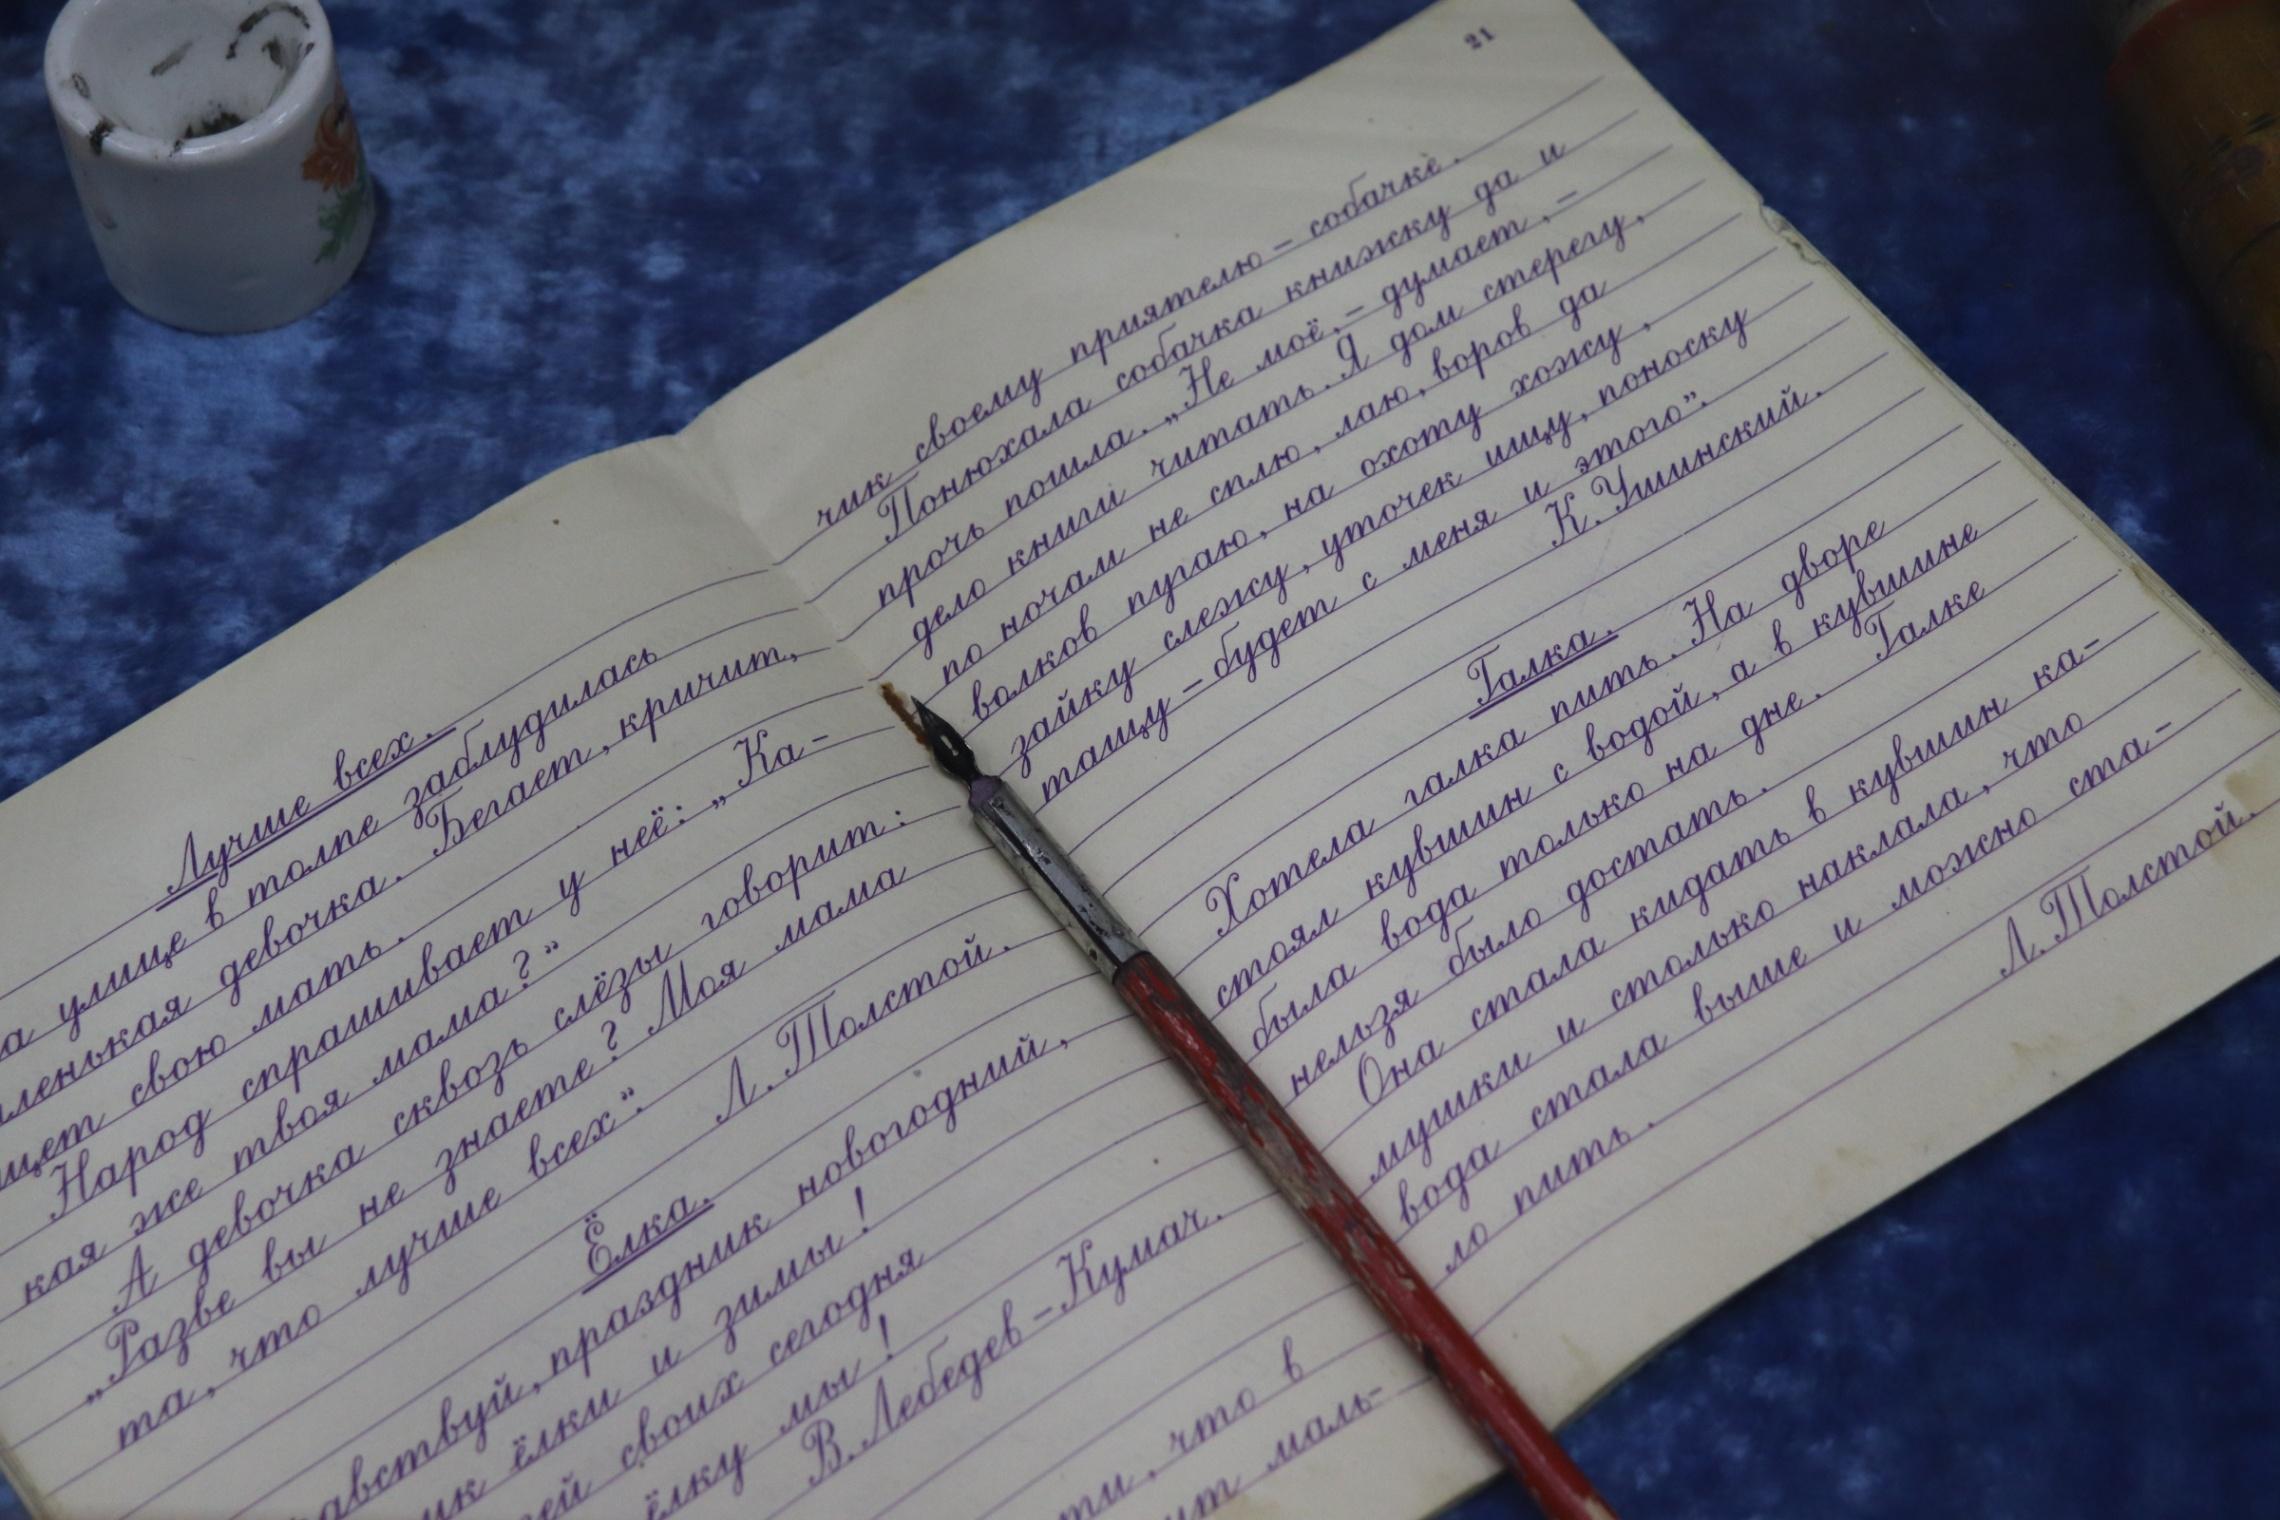 Лучше всех.
а улице в толпе заблудилась
ленькая девочка. Бегает, кричит,
щет свою мать.
Народ спрашивает у неё: „Ка-
кая же твоя мама?"
А девочка сквозь слёзы говорит:
„Разве вы не знаете? Моя мама
та, что лучше всех".
Л. Толстой.
Ёлка.
равствуй, праздник новогодний,
ик ёлки и зимы!
зей своих сегодня
ёлку мы!
В. Лебедев-Кумач.
ти, что в
ит маль-
21
чик своему приятелю - собачке.
Понюхала собачка книжку да и
прочь пошла. „Не моё, - думает, -
дело книги читать. Я дом стерегу,
по ночам не сплю, лаю, воров да
волков пугаю, на охоту хожу,
зайку слежу, уточек ищу, поноску
тащу - будет с меня и этого".
К. Ушинский.
Галка.
Хотела галка пить. На дворе
стоял кувшин с водой, а в кувшине
была вода только на дне. Галке
нельзя было достать.
Она стала кидать в кувшин ка-
мушки и столько наклала, что
вода стала выше и можно ста-
ло пить.
Л. Толстой.